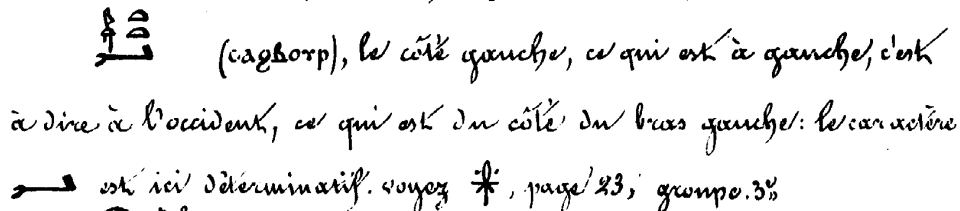 (ⲥⲁϩⲃⲟⲣⲡ), le côté gauche, ce qui est à gauche, c'est
à dire à l'occident, ce qui est du côté du bras gauche: le caractère
est ici déterminatif. voyez, page 23, groupe. 3.